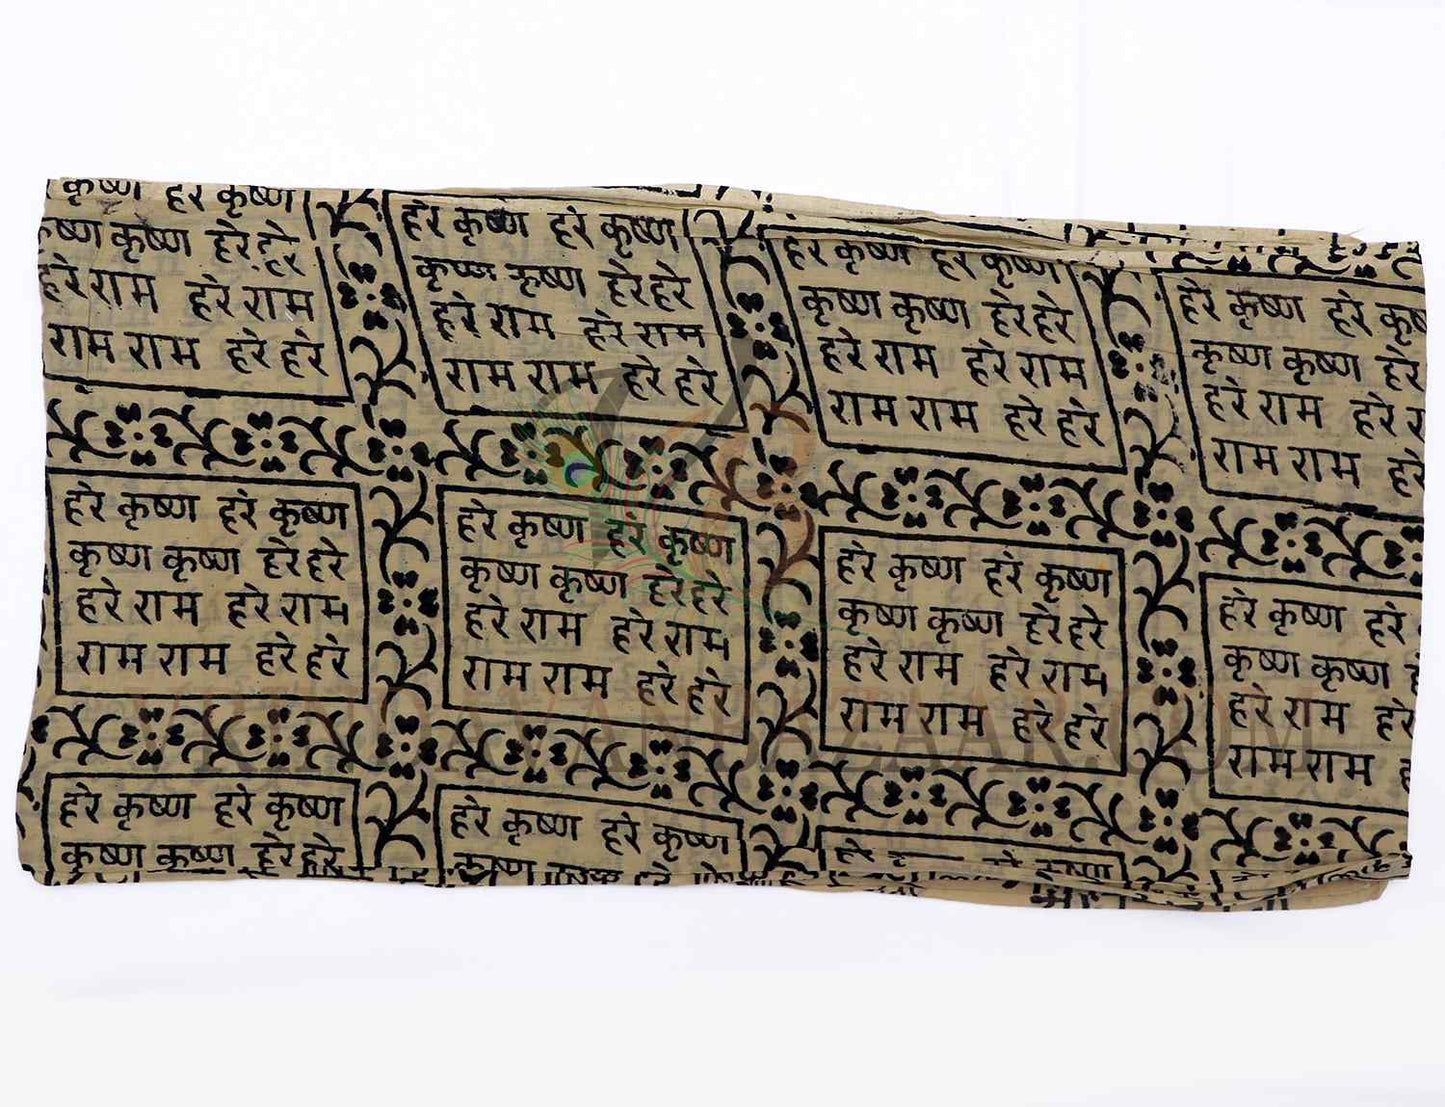 कृष्ण हरे कृष्ण
कृष्ण कृष्ण हरे हरे
हरे राम हरे राम
राम राम हरे हरे
हरे कृष्ण हरे कृष्ण
कृष्ण कृष्ण हरे हरे
हरे राम हरे राम
राम राम हरे हरे
हरे कृष्ण हरे कृष्ण
कृष्ण कृष्ण हरे हरे
हरे राम हरे राम
राम राम हरे हरे
हरे कृष्ण हरे कृष्ण
कृष्ण कृष्ण हरे
हरे राम हरे
राम राम हरे
हरे कृष्ण हरे कृष्ण
कृष्ण कृष्ण हरे हरे
हरे राम हरे राम
राम राम हरे हरे
हरे कृष्ण हरे कृष्ण
कृष्ण कृष्ण हरे हरे
हरे राम हरे राम
राम राम हरे हरे
हरे कृष्ण हरे कृष्ण
कृष्ण कृष्ण हरे हरे
हरे राम हरे राम
राम राम हरे हरे
हरे कृष्ण हरे
कृष्ण कृष्ण
हरे राम हरे
राम राम
हरे कृष्ण हरे कृष्ण
कृष्ण कृष्ण हरे हरे
हरे कृष्ण हरे कृष्ण
कृष्ण
VRINDAVANBAZAAR.COM